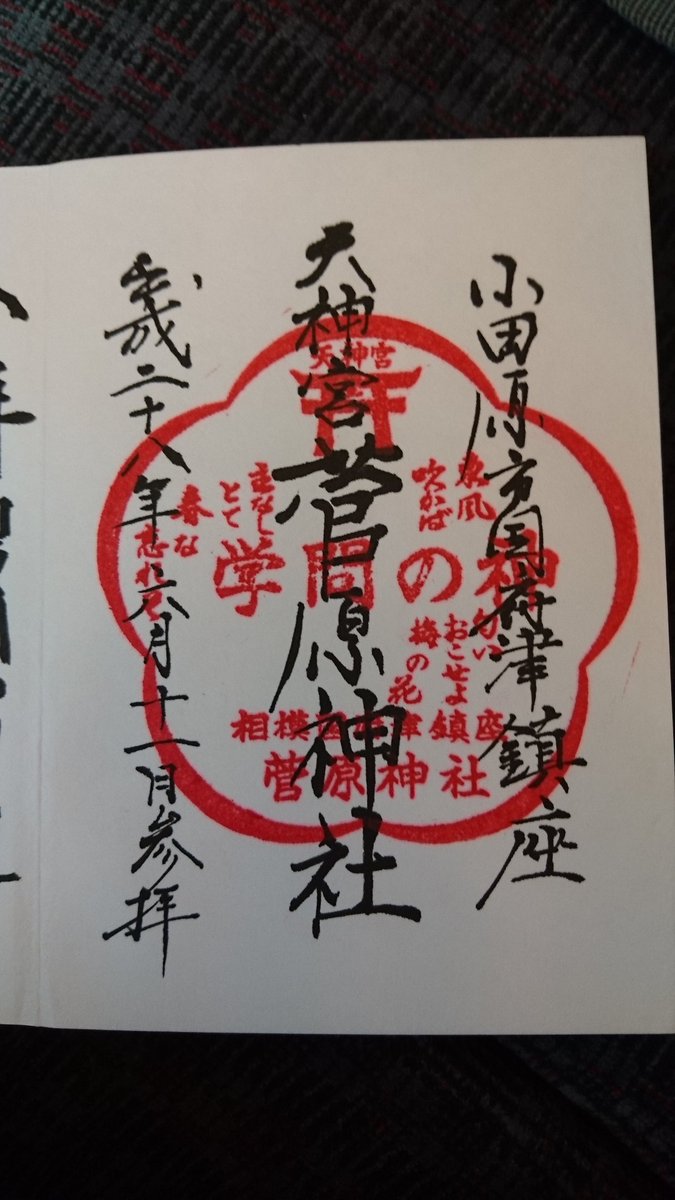 小田原市国府津鎮座
天神宮菅原神社
平成二十八年六月十一日参拝
天神宮
東風
吹かば
匂い
おこせよ
梅の花
主なし
とて
春な
忘れそ
学問の神
相模国府津鎮座
菅原神社